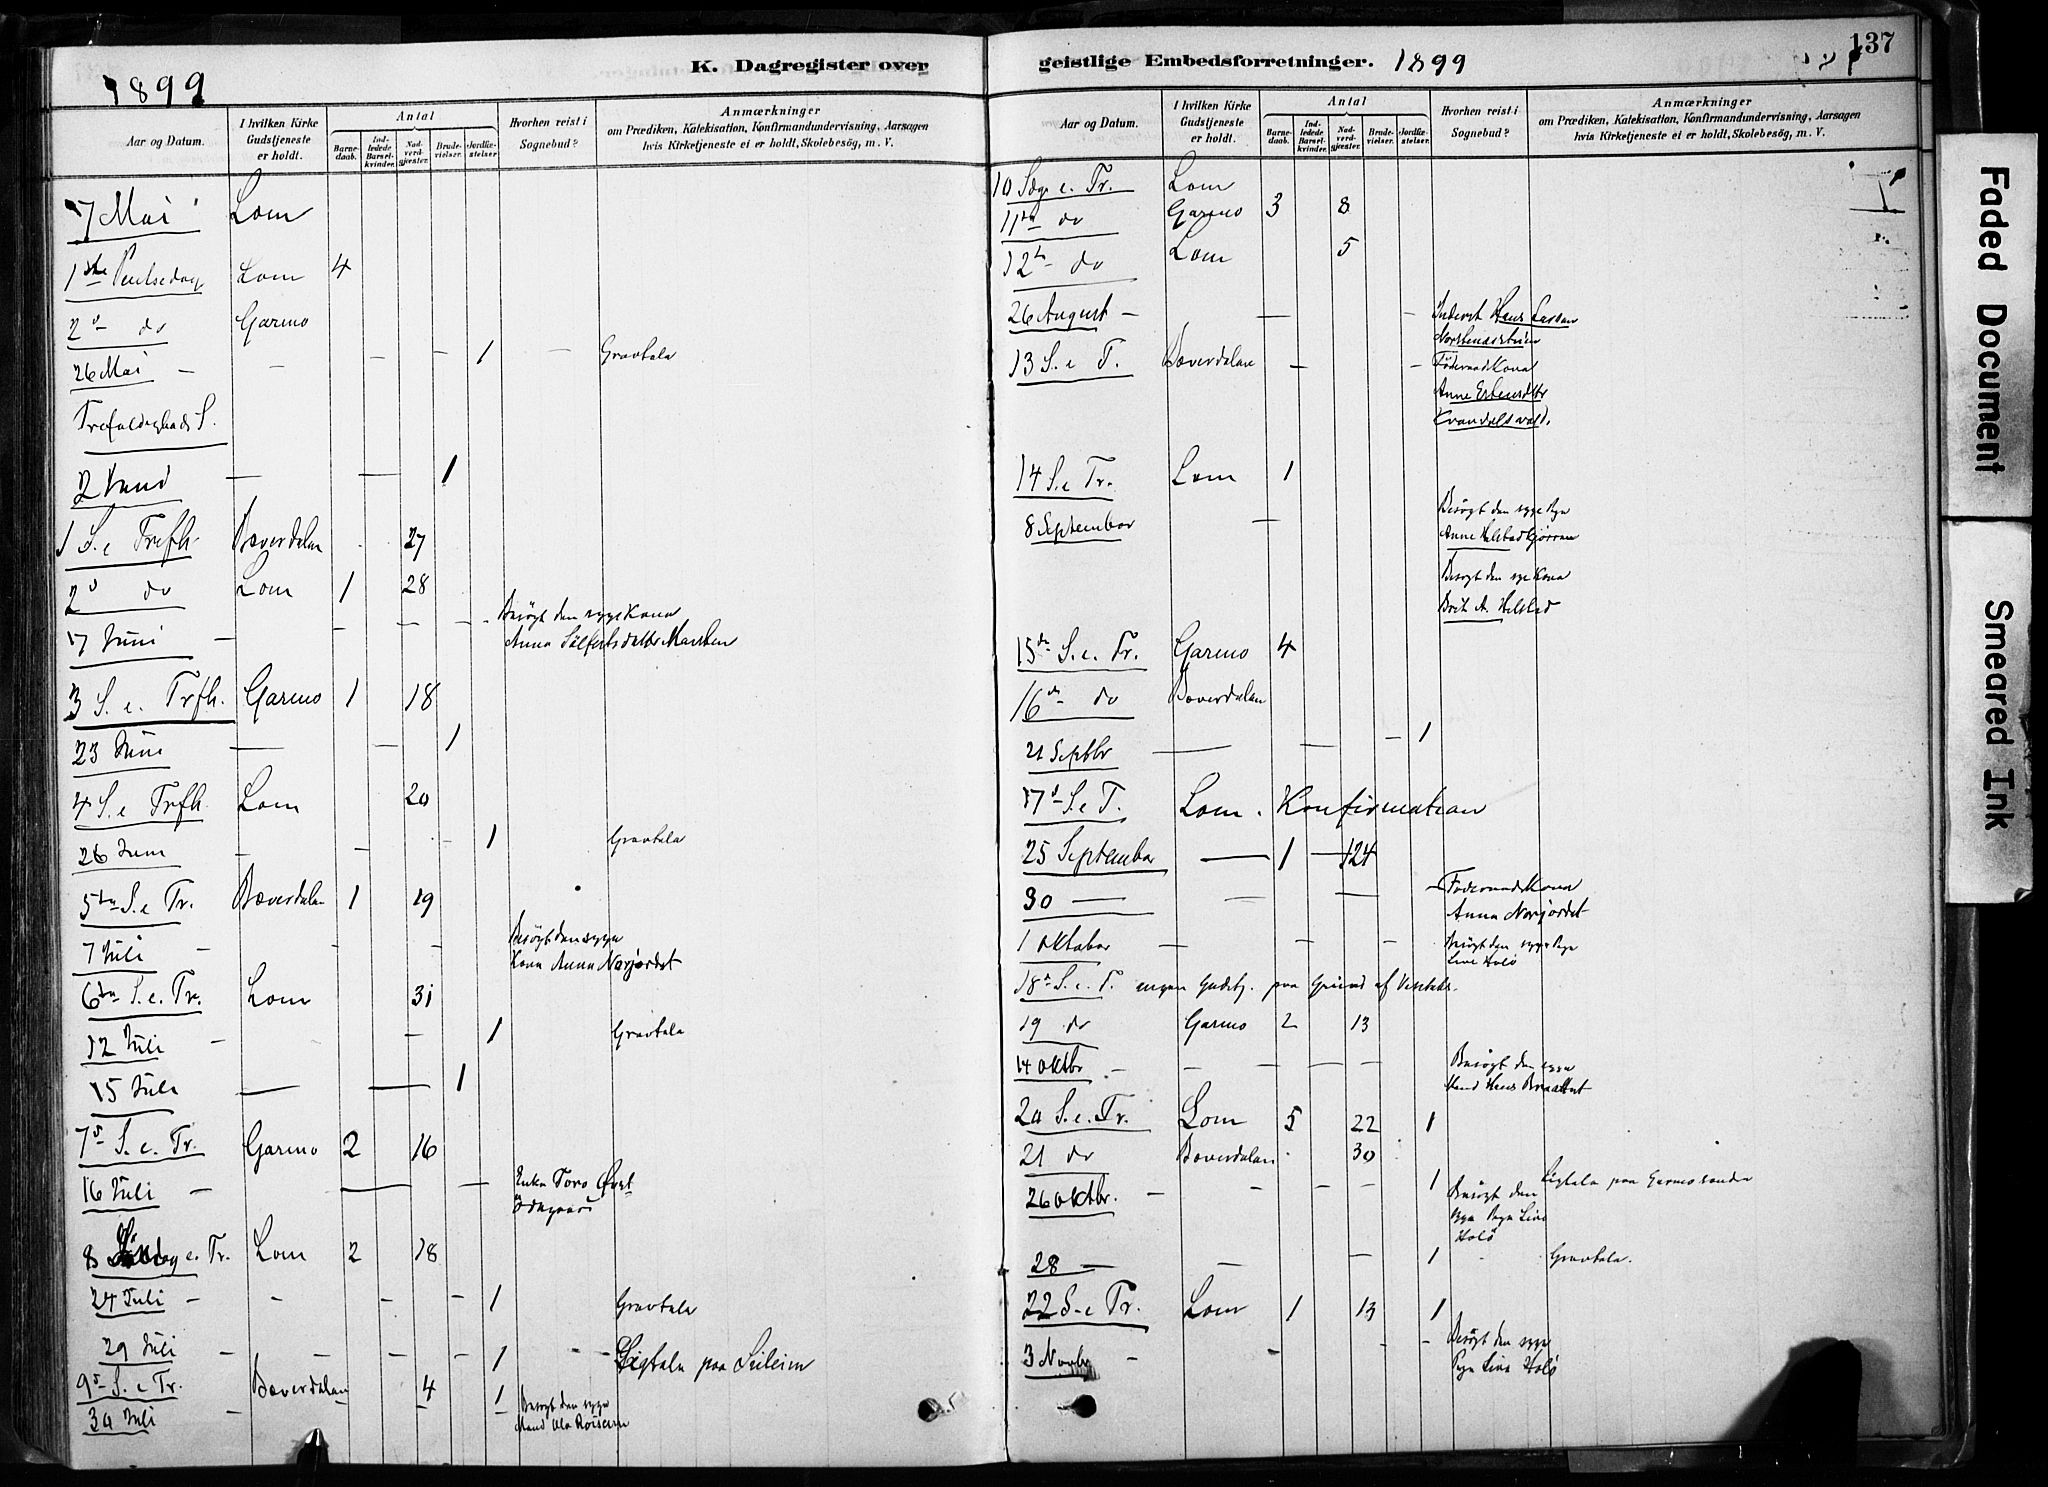 137
K. Dagregister over geistlige Embedsforretninger. 1899
1899
Aar og Datum. I hvilken Kirke Gudstjeneste er holdt. Antal Barnedaab. Indledede Barselkvinder. Nadverdgjester. Brudevielser. Jordfæstelser Hvorhen reist i Sognebud? Anmærkninger om Prædiken, Katekisation, Konfirmandundervisning, Aarsagen hvis Kirketjeneste ei er holdt, Skolebesøg, m. V.
7 Mai Lom
1ste Pintsedag Lom 4
2 do Garmo
26 Mai — — — — 1 — Gravtale
Trefoldigheds S.
2 Juni — — 1
1 S. e Trefh. Bæverdalen 27
2 do Lom 1 28
7 Juni — — — — Besøgt den syge Kone
Anna
3 S. e. Trfh. Garmo 1 18
23 Juni — — 1
4 S. e Trfh. Lom 20
26 Juni — — — 1 Gravtale
5te S. e Tr. Bæverdalen 1 19
7 Juli — — — Besøgt den syge
Kone Anna Norjordet
6te S. e. Tr. Lom 31
12 Juli — — 1 Gravtale
15 Juli — — 1
7 S. e. Tr. Garmo 2 16
16 Juli — — — Enke Toro
8 e. Tr. Lom 2 18
24 Juli — — — — 1 Gravtale
29 Juli — — — — 1 — Ligtale paa
9 S. e Tr. Bæverdalen 4 1
30 Juli — — — — Besøgt den syge
Mand Ola
Aar og Datum. I hvilken Kirke Gudstjeneste er holdt. Antal Barnedaab. Indledede Barselkvinder. Nadverdgjester. Brudevielser. Jordfæstelser. Hvorhen reist i Sognebud? Anmærkninger om Prædiken, Katekisation, Konfirmandundervisning, Aarsagen hvis Kirketjeneste ei er holdt, Skolebesøg, m. V.
10 e. Tr. Lom
11te do Garmo 3 8
12 do Lom 5
26 August — — — Inderst Hans
13 S. e T. Bæverdalen — — Føderaadskone
Anne
14 S. e Tr. Lom 1
8 September — Besøgt den syge Pige
Anne
Besøgt den syge Kone
Brit A.
15de S. e. Tr. Garmo 4
16 do Bæverdalen
21 Septbr — — — 1
17 S. e T. Lom. Konfirmation
25 September — 1 — 124
30 — — — — Føderaadskone
Anna Norjordet
1 Oktober — — — Besøgt den syge Pige
Live Holø
18 S. e. T. ingen Gudstj. paa Grund af
19 do Garmo 2 13
14 Oktbr — — — — — Besøgt den syge
Mand Hans
20 S. e. Tr. Lom 5 22 1
21 do Bæverdalen 30
26 Oktbr. — — — — 1 Besøgt den Ligtale paa
syge Pige Live
Holø
28 — — — 1 Gravtale.
22 S. e Tr. Lom 1 13 1
3 Novbr — — — — Besøgt den syge
Pige Live Holø
Faded Document
Smeared Ink